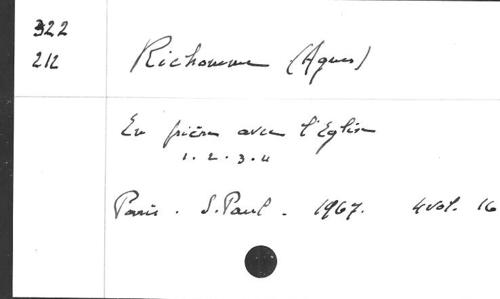 322
212
Richomme (Agnes)
En prière avec l'Eglise
1.2.3.4
Paris. S. Paul. 1967. 4 vol. 16